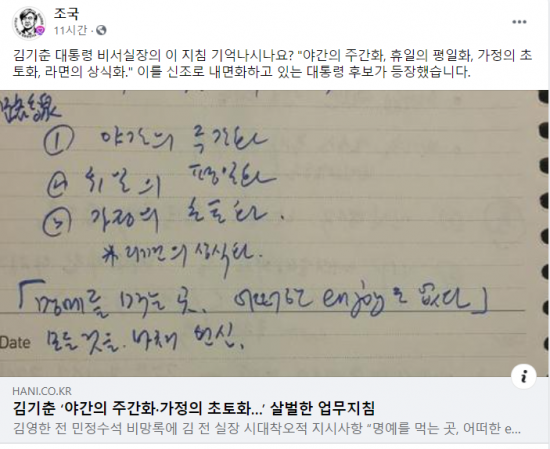 조국
11시간
김기춘 대통령 비서실장의 이 지침 기억나시나요? "야간의 주간화, 휴일의 평일화, 가정의 초
토화, 라면의 상식화." 이를 신조로 내면화하고 있는 대통령 후보가 등장했습니다.
① 야간의 주간화
② 휴일의 평일화
③ 가정의 초토화.
※ 라면의 상식화.
「명예를 먹는 곳. 어떠한 enjoy도 없다」
Date 모든 것을 바쳐 헌신.
HANI.CO.KR
김기춘 ‘야간의 주간화·가정의 초토화...’ 살벌한 업무지침
김영한 전 민정수석 비망록에 김 전 실장 시대착오적 지시사항 “명예를 먹는 곳, 어떠한 e...